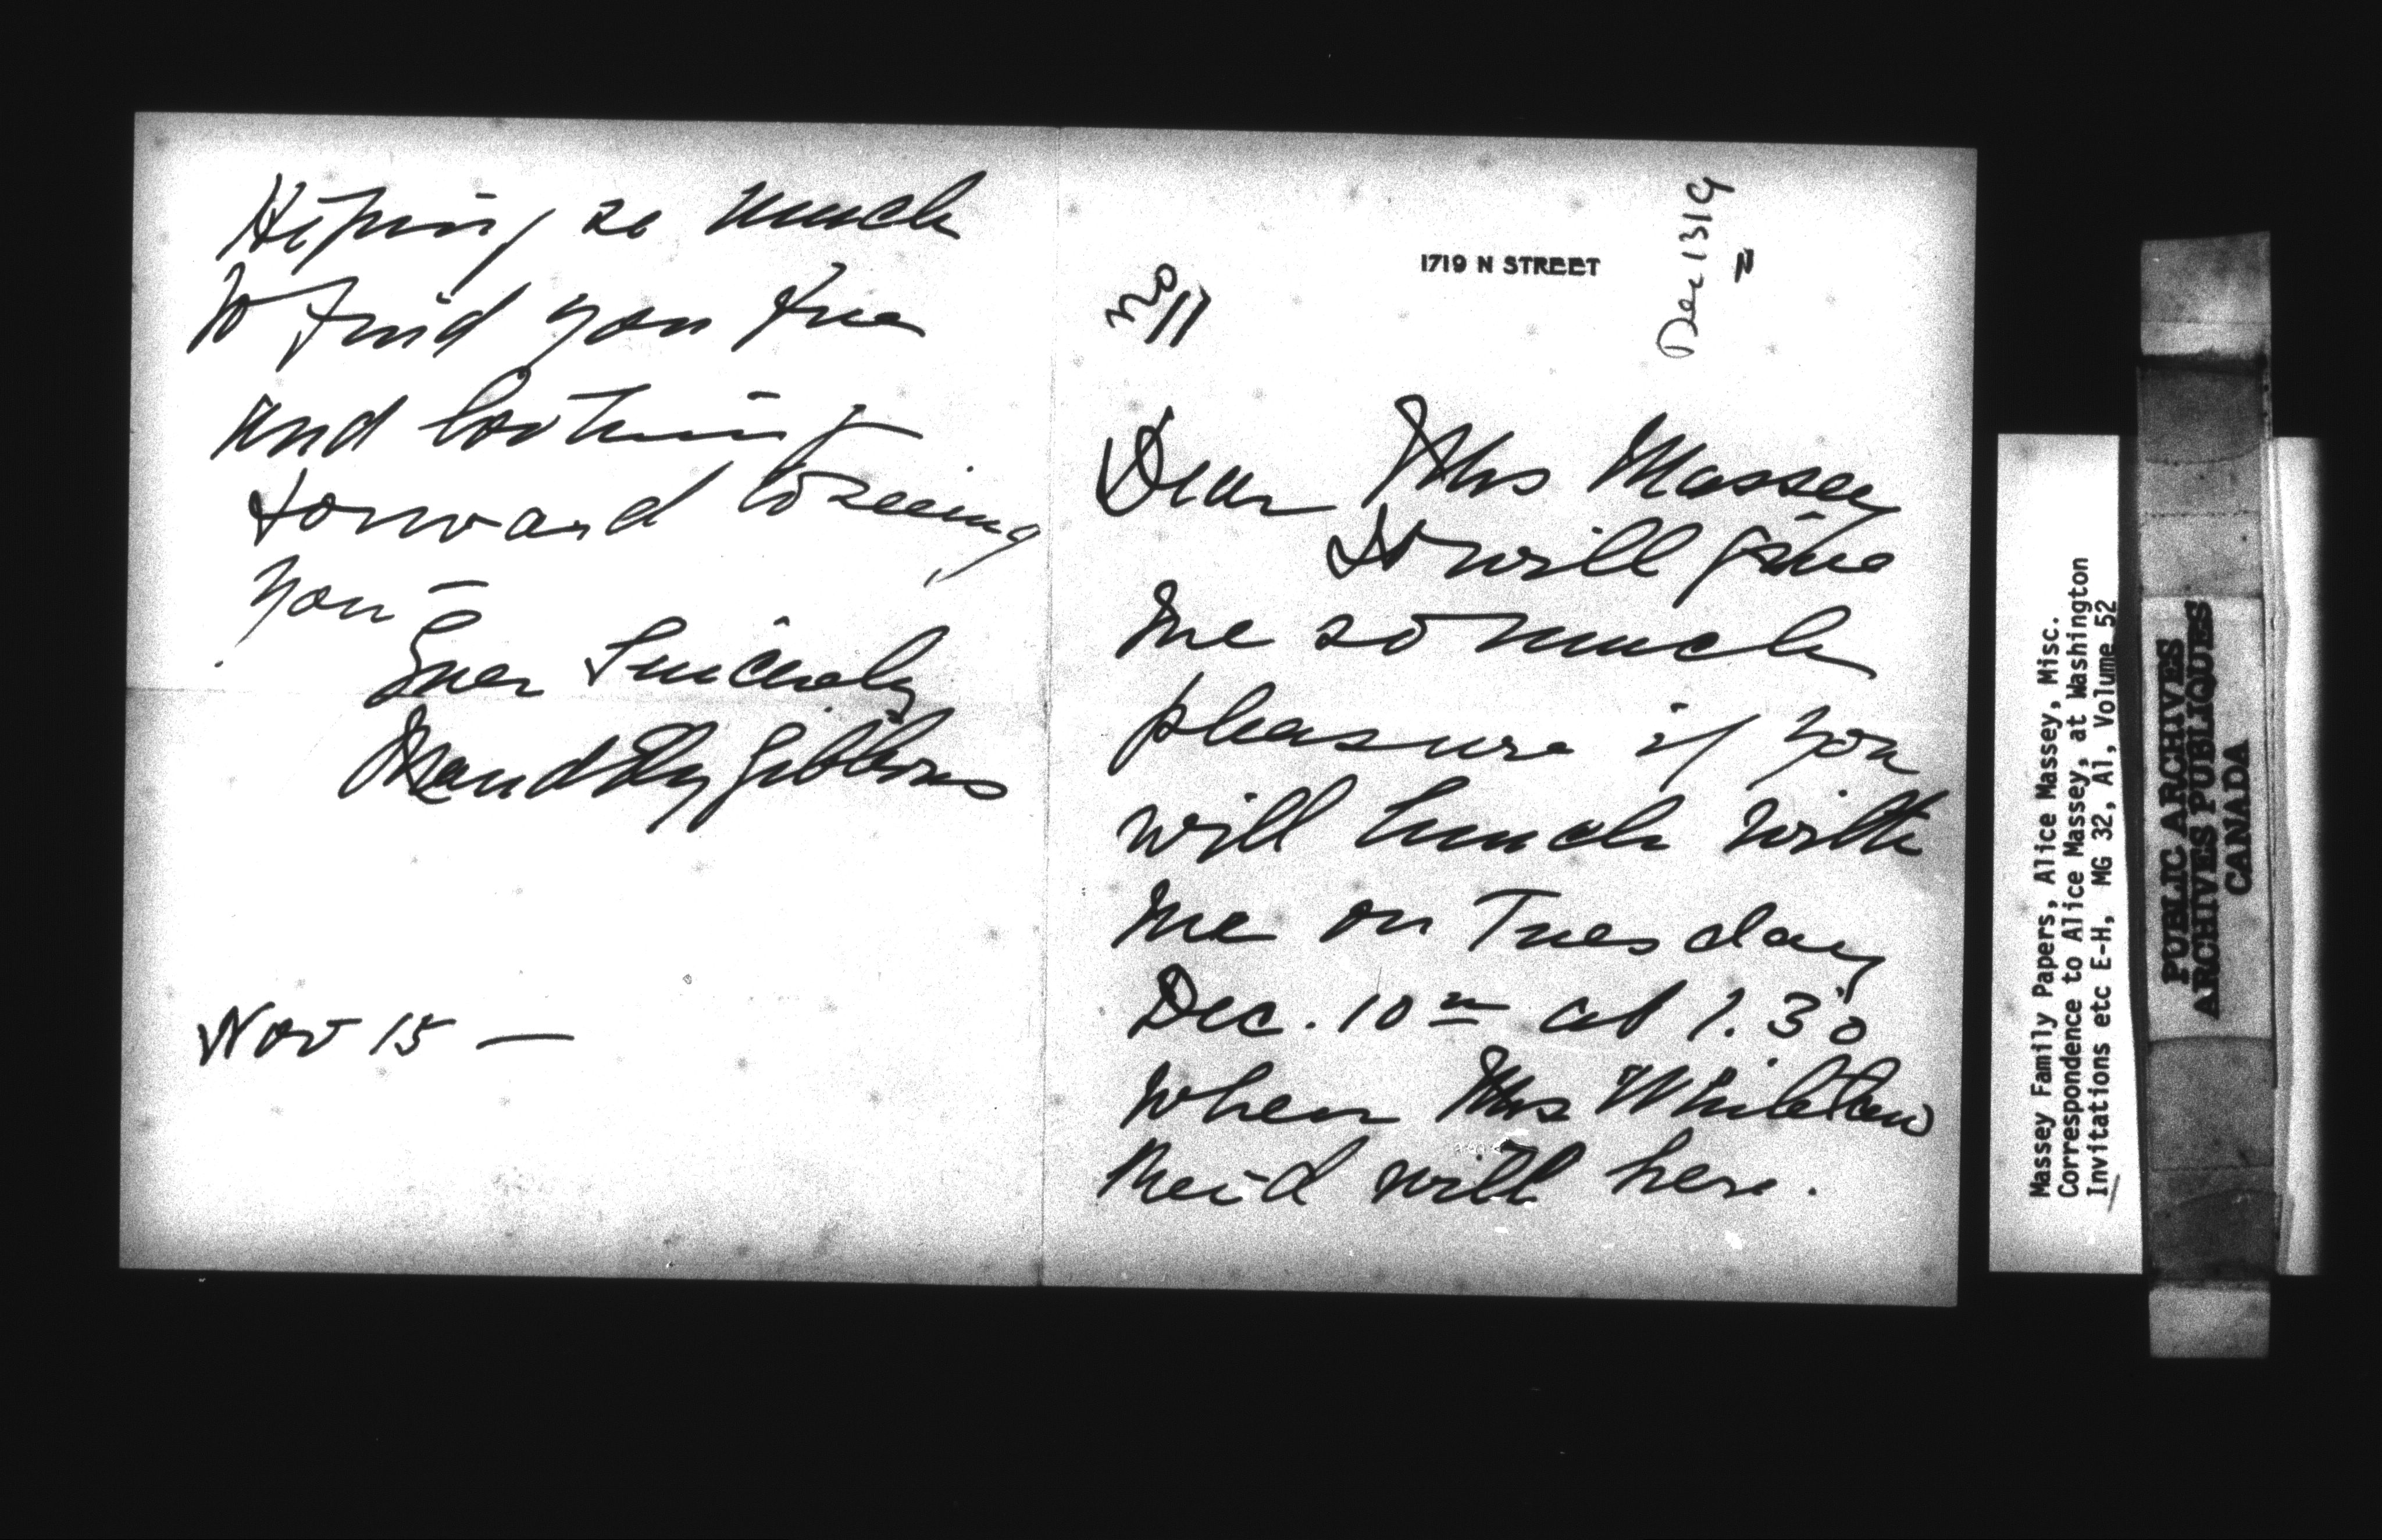 1719 N STREET
Dear Mrs Massey
It will give
me so much
pleasure if you
will lunch with
me on Tuesday
Dec. 10th at 1.30
when Mrs Whitelaw
Reid will here.
Hoping so much
to find you free
and looking
forward to seeing
you –
Ever Sincerely
Maud Ely Gibbons
Nov 15 —
Massey Family Papers, Alice Massey, Misc.
Correspondence to Alice Massey, at Washington
Invitations etc E-H, MG 32, A1, Volume 52
PUBLIC ARCHIVES
ARCHIVES PUBLIQUES
CANADA